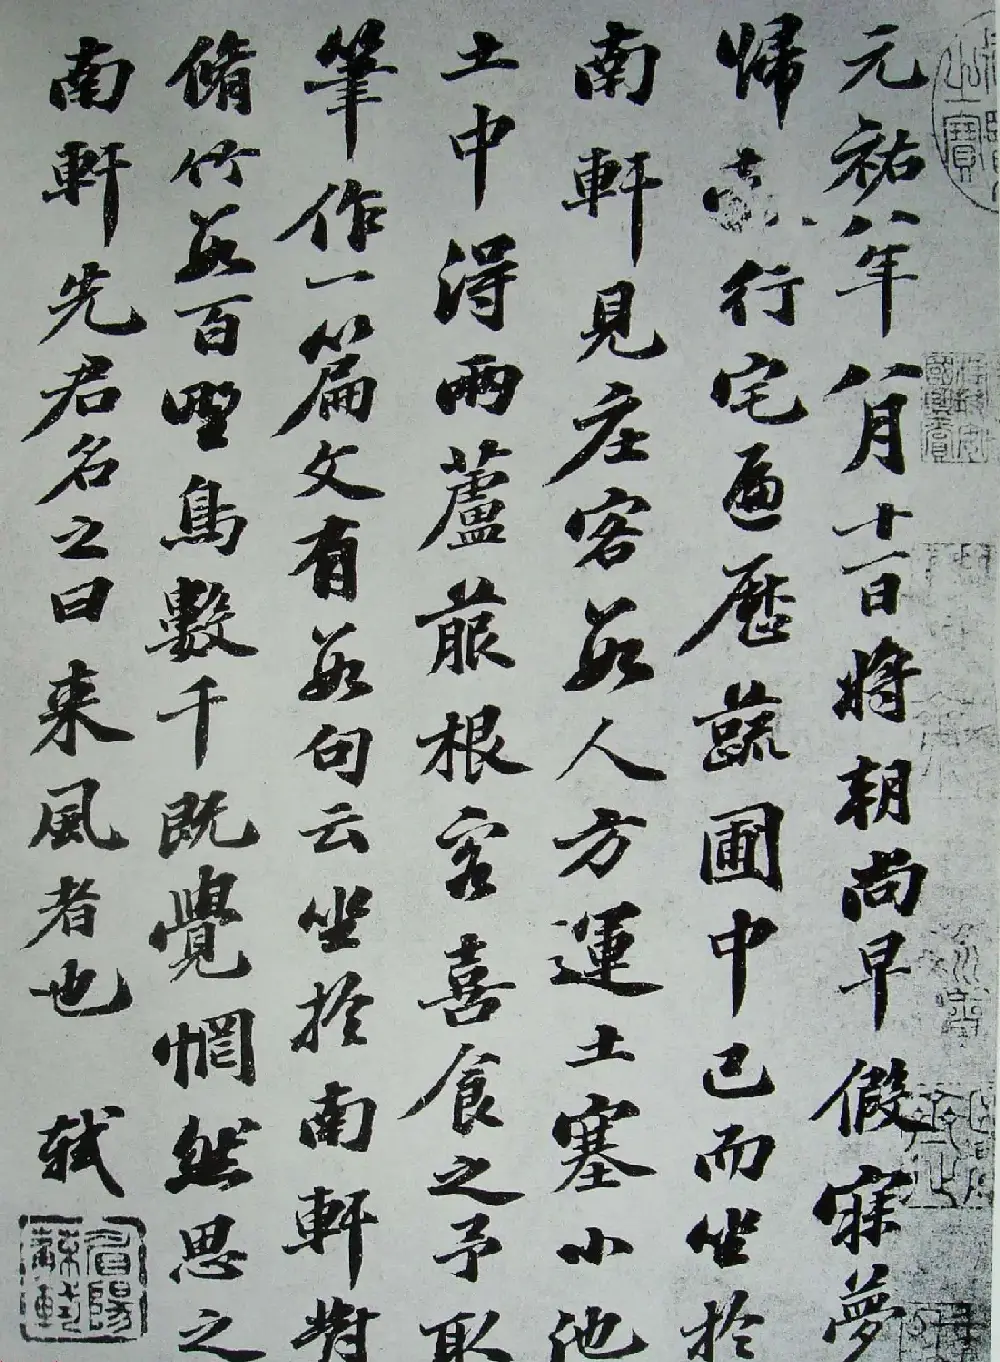 元祐八年八月十一日將朝尚早假寐夢
歸行宅遍歷蔬圃中已而坐於
南軒見庄客數人方運土塞小池
土中得兩蘆菔根客喜食之予取
筆作一篇文有數句云坐於南軒對
脩竹數百野鳥數千既覺惘然思之
南軒先君名之曰来風者也 軾
眉陽蘇軾